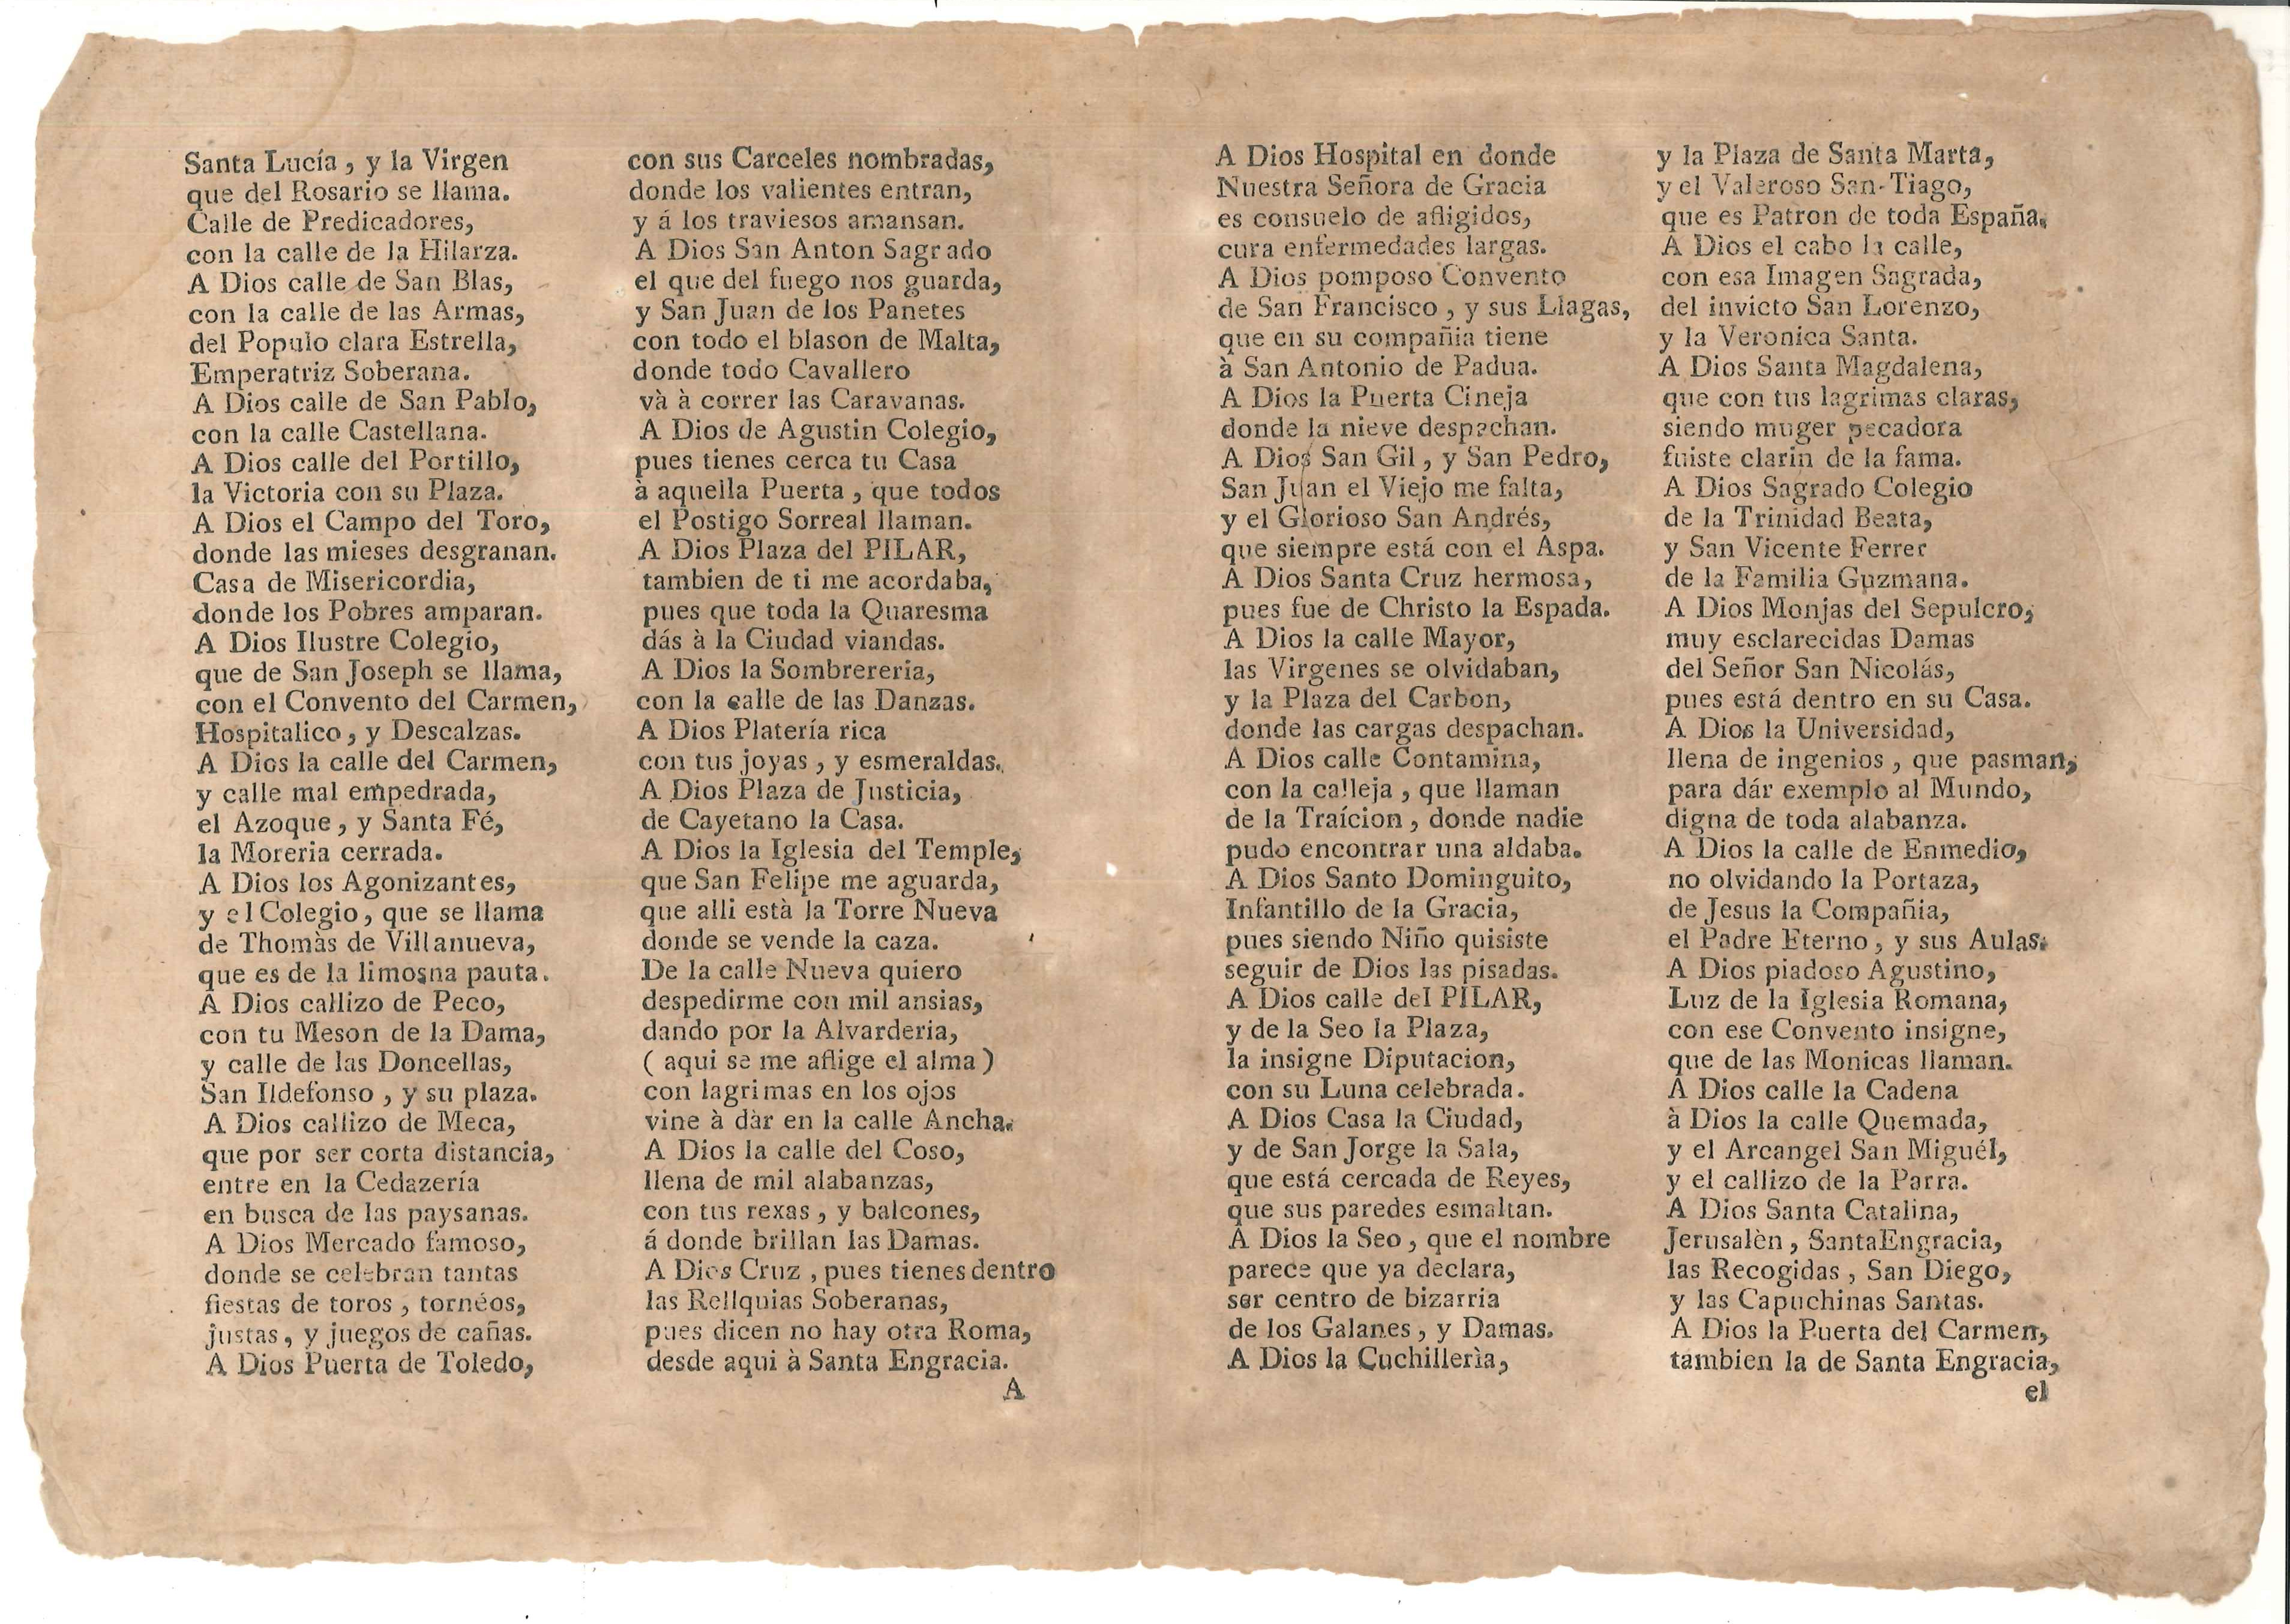 Santa Lucía, y la Virgen
que del Rosario se llama.
Calle de Predicadores,
con la calle de la Hilarza.
A Dios calle de San Blas,
con la calle de las Armas,
del Populo clara Estrella,
Emperatriz Soberana.
A Dios calle de San Pablo,
con la calle Castellana.
A Dios calle del Portillo,
la Victoria con su Plaza.
A Dios el Campo del Toro,
donde las mieses desgranan.
Casa de Misericordia,
donde los Pobres amparan.
A Dios Ilustre Colegio,
que de San Joseph se llama,
con el Convento del Carmen,
Hospitalico, y Descalzas.
A Dios la calle del Carmen,
y calle mal empedrada,
el Azoque, y Santa Fé,
la Moreria cerrada.
A Dios los Agonizantes,
y el Colegio, que se llama
de Thomàs de Villanueva,
que es de la limosna pauta.
A Dios callizo de Peco,
con tu Meson de la Dama,
y calle de las Doncellas,
San Ildefonso, y su plaza.
A Dios callizo de Meca,
que por ser corta distancia,
entre en la Cedazería
en busca de las paysanas.
A Dios Mercado famoso,
donde se celebran tantas
fiestas de toros, tornéos,
justas, y juegos de cañas.
A Dios Puerta de Toledo,
con sus Carceles nombradas,
donde los valientes entran,
y á los traviesos amansan.
A Dios San Anton Sagrado
el que del fuego nos guarda,
y San Juan de los Panetes
con todo el blason de Malta,
donde todo Cavallero
và à correr las Caravanas.
A Dios de Agustin Colegio,
pues tienes cerca tu Casa
à aquella Puerta, que todos
el Postigo Sorreal llaman.
A Dios Plaza del PILAR,
tambien de ti me acordaba,
pues que toda la Quaresma
dás à la Ciudad viandas.
A Dios la Sombrereria,
con la calle de las Danzas.
A Dios Platería rica
con tus joyas, y esmeraldas.
A Dios Plaza de Justicia,
de Cayetano la Casa.
A Dios la Iglesia del Temple,
que San Felipe me aguarda,
que alli està la Torre Nueva
donde se vende la caza.
De la calle Nueva quiero
despedirme con mil ansias,
dando por la Alvarderia,
( aqui se me aflige el alma )
con lagrimas en los ojos
vine à dàr en la calle Ancha.
A Dios la calle del Coso,
llena de mil alabanzas,
con tus rexas, y balcones,
á donde brillan las Damas.
A Dios Cruz, pues tienes dentro
las Rellquias Soberanas,
pues dicen no hay otra Roma,
desde aqui à Santa Engracia.
A
A Dios Hospital en donde
Nuestra Señora de Gracia
es consuelo de afligidos,
cura enfermedades largas.
A Dios pomposo Convento
de San Francisco, y sus Llagas,
que en su compañia tiene
à San Antonio de Padua.
A Dios la Puerta Cineja
donde la nieve despachan.
A Dios San Gil, y San Pedro,
San Juan el Viejo me falta,
y el Glorioso San Andrés,
que siempre está con el Aspa.
A Dios Santa Cruz hermosa,
pues fue de Christo la Espada.
A Dios la calle Mayor,
las Virgenes se olvidaban,
y la Plaza del Carbon,
donde las cargas despachan.
A Dios calle Contamina,
con la calleja, que llaman
de la Traícion, donde nadie
pudo encontrar una aldaba.
A Dios Santo Dominguito,
Infantillo de la Gracia,
pues siendo Niño quisiste
seguir de Dios las pisadas.
A Dios calle del PILAR,
y de la Seo la Plaza,
la insigne Diputacion,
con su Luna celebrada.
A Dios Casa la Ciudad,
y de San Jorge la Sala,
que está cercada de Reyes,
que sus paredes esmaltan.
A Dios la Seo, que el nombre
parece que ya declara,
ser centro de bizarria
de los Galanes, y Damas.
A Dios la Cuchillerìa,
y la Plaza de Santa Marta,
y el Valeroso San-Tiago,
que es Patron de toda España.
A Dios el cabo la calle,
con esa Imagen Sagrada,
del invicto San Lorenzo,
y la Veronica Santa.
A Dios Santa Magdalena,
que con tus lagrimas claras,
siendo muger pecadora
fuiste clarin de la fama.
A Dios Sagrado Colegio
de la Trinidad Beata,
y San Vicente Ferrer
de la Familia Guzmana.
A Dios Monjas del Sepulcro,
muy esclarecidas Damas
del Señor San Nicolás,
pues está dentro en su Casa.
A Dios la Universidad,
llena de ingenios, que pasman,
para dár exemplo al Mundo,
digna de toda alabanza.
A Dios la calle de Enmedio,
no olvidando la Portaza,
de Jesus la Compañia,
el Padre Eterno, y sus Aulas.
A Dios piadoso Agustino,
Luz de la Iglesia Romana,
con ese Convento insigne,
que de las Monicas llaman.
A Dios calle la Cadena
à Dios la calle Quemada,
y el Arcangel San Miguél,
y el callizo de la Parra.
A Dios Santa Catalina,
Jerusalèn, SantaEngracia,
las Recogidas, San Diego,
y las Capuchinas Santas.
A Dios la Puerta del Carmen,
tambien la de Santa Engracia,
el